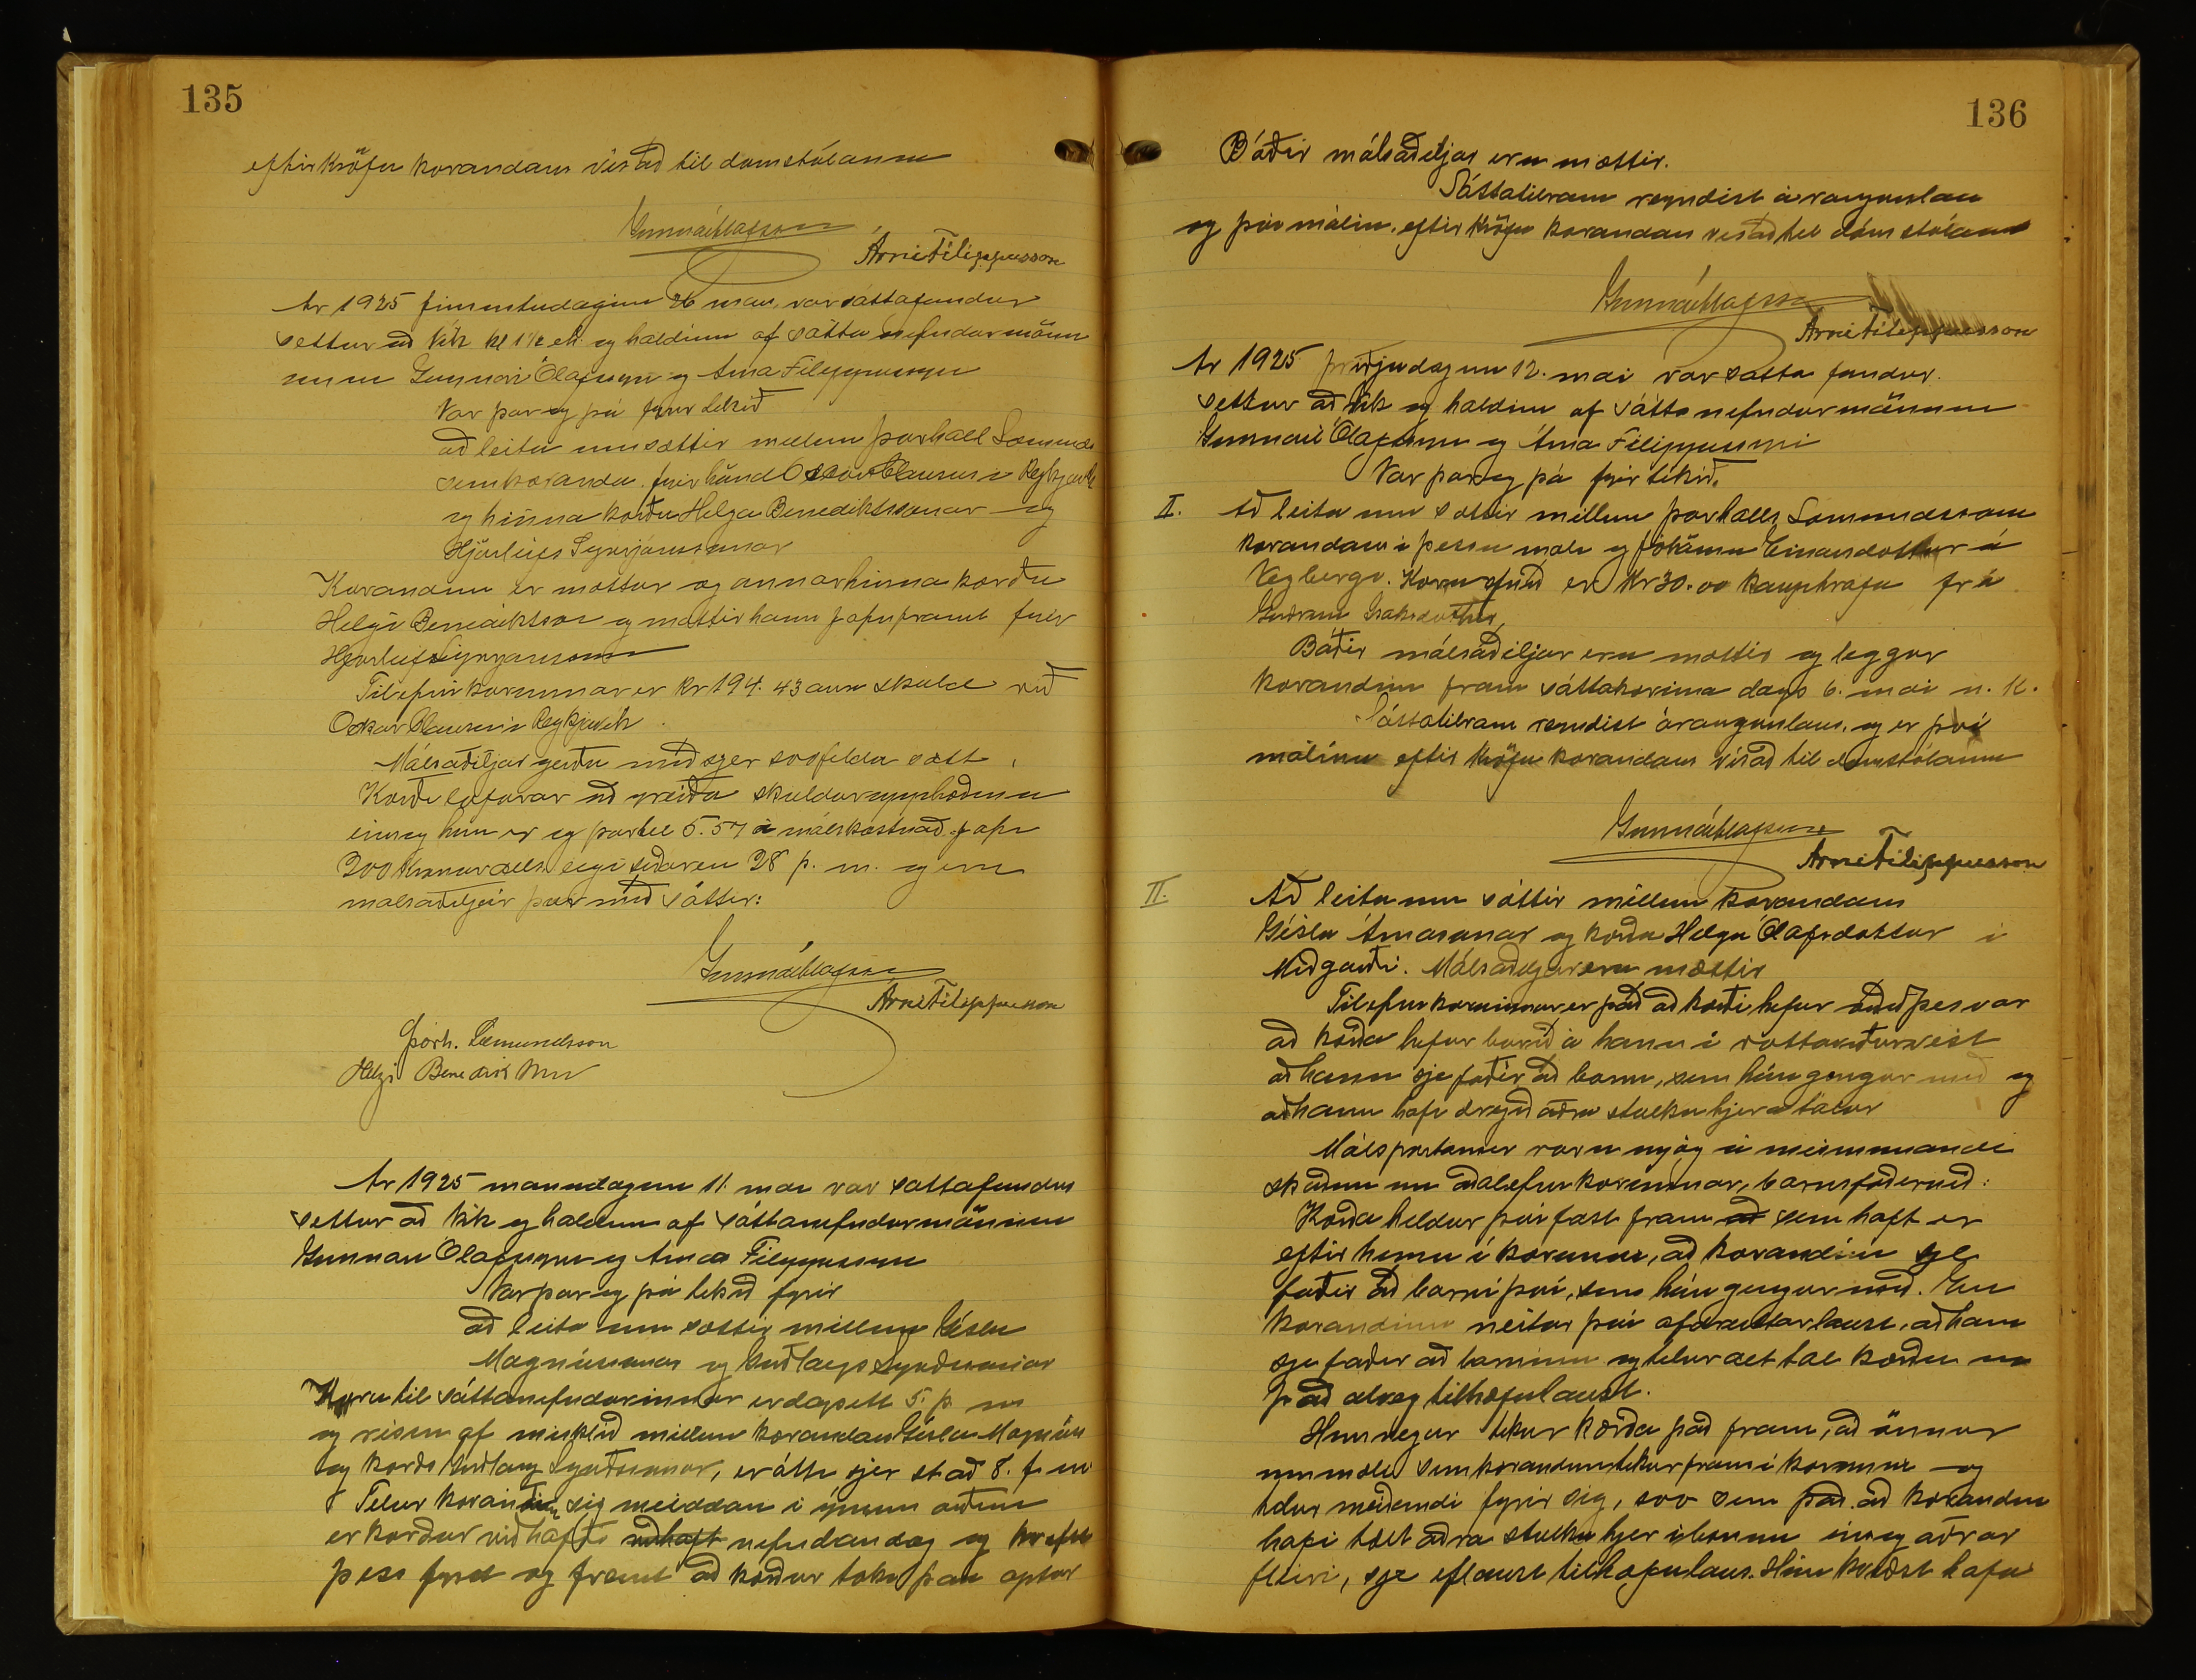 135
eftir kröfu kærandans vísað til domstólanna
Gunnar Ólafsson
Árni Filippusson
Ár 1925 fimmtudaginn 26 mars var sáttafundur
settur að Vík kl 1½ eh og haldinn af sáttanefndarmönn
unum Gunnari Ólafssyni og Árna Filippussyni
Var þar og þá fyrir tekið
að leita um sættir millum Þórhall Sæmunds
sem kæranda fyrir hönd Oskar Clausens í Reykjavík
og hinna kærðu Helga Benediktssonar og
Hjörleifs Sigurjónssonar
Kærandinn er mættur og annar hinna kærðu
Helgi Benediktsson og mætir hann jafnframt fyrir
Hjörleif Sigurjónsson
Tilefni kærunnar er kr 194.43 aura skuld við
Oskar Clausen í Reykjavík.
Málsaðiljar gerðu með sjer svofelda sætt
Kærði lofar að greiða skuldarupphæðina
eins og hún er og þar til 5.57 í málskostnað. Jafn
200 krónur alls eigi síðar en 28 þ. m. og eru
malsaðiljar þar með sáttir:
Gunnar Ólafsson
Árni Filippusson
Þórh. Sæmundsson
Helgi Benediktsson
Ár 1925 manudaginn 11. mai var sattafundur
settur að Vík og haldinn af sáttanefndarmönnum
Gunnari Ólafssyni og Árna Filippussyni
Var þar og þá tekið fyrir
að leita um sættir millum Gísla
Magnússonar og Guðlaugs
Kæra til sáttanefndarinnar er dagsett 5. þ. m
og risin af misklíð millum kærandans Gísla Magnúss
og kærða Guðlaug, er átti sjer stað 8. f. m
Telur kærandinn sig meiddan í ýmsum orðum
er kærður viðhafði viðhaft nefndan dag og krefst
þess fyrst og fremst að kærður taki þau aptur
136
Báðir málsaðiljar eru mættir.
Sáttatilraun reyndist árangurslaus
og því málinu eftir kröfu kærandans vísað til dómstólanna
Gunnar Ólafsson
Árni Filippusson
Ár 1925 þriðjudaginn 12. mai var satta fundur
settur að Vík og haldinn af sáttanefndarmönnum
Gunnari Ólafssyni og Árna Filippussyni
Var þar og þá fyrir tekið.
I. Að leita um sættir millum Þorhalls Sæmundssonar
kærandans í þessu máli og Jóhönnu Einarsdóttur á
Vegbergi. Kæruefnið er kr 30.00 kaupkrafa frá
Guðrunu Isaksdóttur,
Báðir málsaðiljar eru mættir og leggur
kærandinn fram sáttakæruna dags 6. mai n. k.
Sáttatilraun reyndist árangurslaus, og er því
málinu eftir kröfu kærandans vísað til domstólanna
Gunnar Ólafsson
Árni Filippusson
II. Að leita um sáttir millum kærandans
Gísla Árnasonar og kærðu Helgu Ólafsdóttur í
Miðgarði. Málsaðiljar eru mættir
Tilefni kærunnar er það að kærði hefur orðið þess var
að kærða hefur borið á hann í votta viðurvist
að hann sje faðir að barni, sem hún gengur með og
að hann hafi dregið aðra stulku hjer á tálar
Málspartarnir voru mjög á meinmunandi
skoðun um aðalefni kærunnar, barnsfaðernið:
Kærða heldur því fast fram að sem haft er
eftir henni í kærunni, að kærandinn sje
faðir að barni því, sem hún gengur með. En
kærandinn neitar því afdráttarlaust, að hann
sje faðir að barninu og telur alt tal kærðu um
það alveg tilhæfulaust.
Hinsvegar tekur kærða það fram, að önnur
ummæli sem kærandinn tekur fram í kærunni og
telur meiðandi fyrir sig, svo sem það að kærandinn
hafi tælt aðra stulku hjer í bænum eins og aðrar
fleiri, sje eflaust tilhæfulaus. Hún kveðst hafa